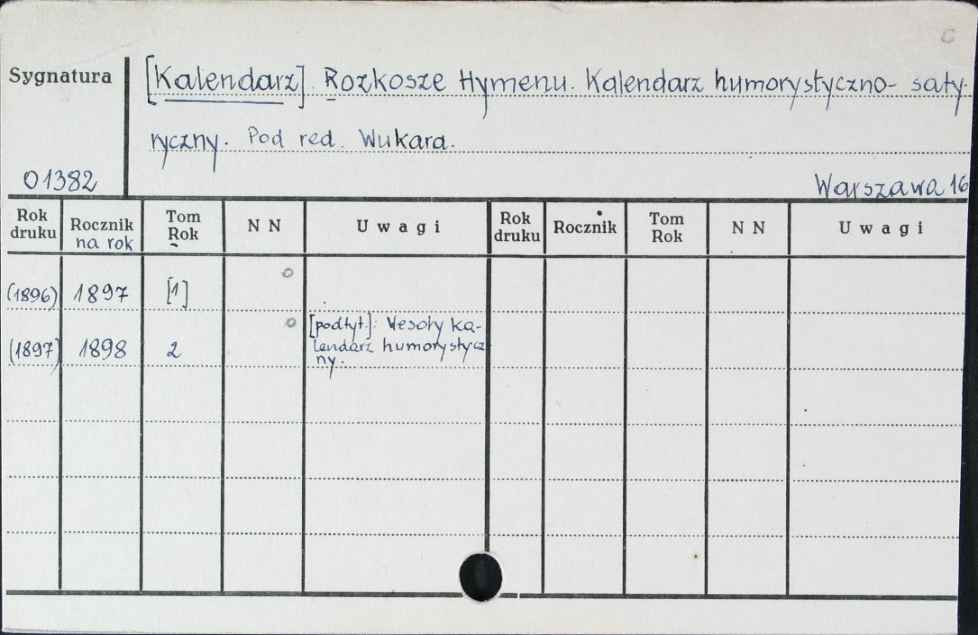 Sygnatura
[Kalendarz]. Rozkosze Hymenu. Kalendarz humorystyczno- saty-
ryczny. Pod red. Wukara.
01382
Warszawa 16
Rok druku | Rocznik na rok | Tom Rok | N N | Uwagi | Rok druku | Rocznik | Tom Rok | N N | Uwagi
(1896) 1897 [1]
(1897) 1898 2 [podtyt.]: Wesoły ka-
lendarz humorystycz
ny.